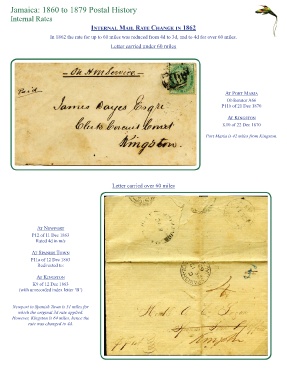 Jamaica: 1860 to 1879 Postal History
Internal Rates
INTERNAL MAIL RATE CHANGE IN 1862
In 1862 the rate for up to 60 miles was reduced from 4d to 3d, and to 4d for over 60 miles.
Letter carried under 60 miles
On HM Service
Paid
James Dayes Esqr
Clerk Circuit Court
Kingston
AT PORT MARIA
of 20 Dec 1870
AT KINGSTON
of 22 Dec 1870
Port Maria is 42 miles from Kingston.
Letter carried over 60 miles
AT NEWPORT
P12 of 11 Dec 1863
Rated 4d in m/s
AT SPANISH TOWN
of 12 Dec 1863
AT KINGSTON
K9 of 12 Dec 1863
(with unrecorded index letter
Newport to Spanish Town is 51 miles for
which the original 3d rate applied.
However, Kingston is 64 miles, hence the
rate was changed to 4d.